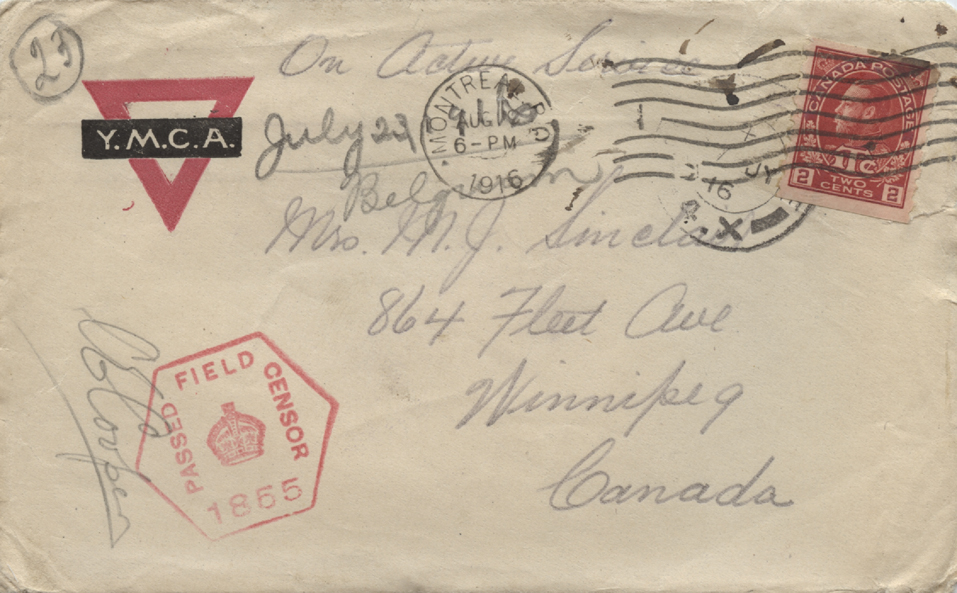 23
On Active Service
Y.M.C.A.
July 23
MONTREAL P.Q.
AUG
6-PM
1916
Belgium
CANADA POSTAGE
TWO
CENTS
2 2
JY
16
X
Mrs. M. J. Sinclair
864 Fleet Ave
Winnipeg
Canada
PASSED FIELD CENSOR
1865